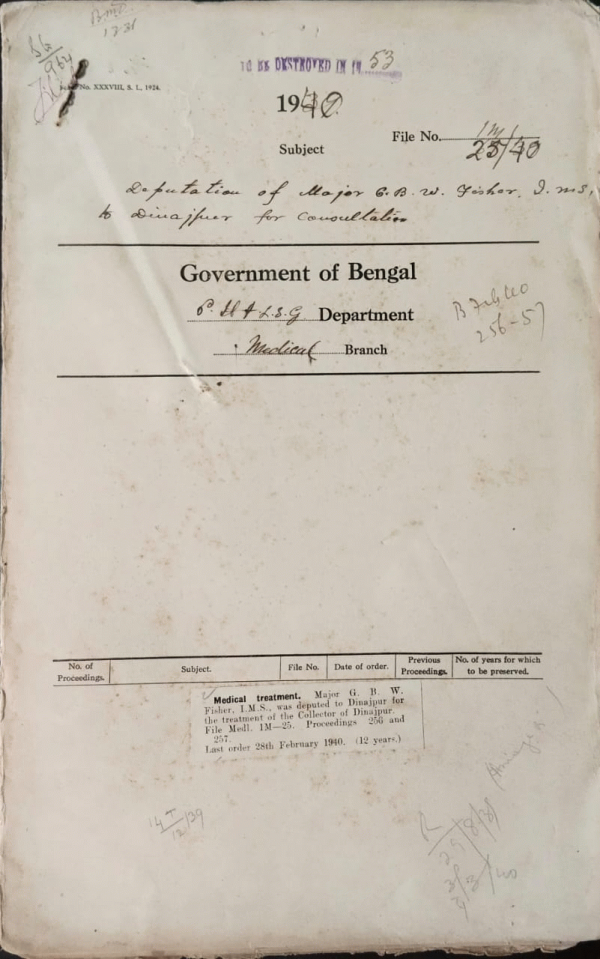 B.M.P.
TO BE DESTROYED IN 19 53
No. XXXVIII, S. L., 1924.
1940
File No. 1M/25/40
Subject
Deputation of Major G. B. W. Fisher, I. M. S,
to Dinajpur for consultation
Government of Bengal
P. H & L. S. G Department
Medical Branch
B Feb 40
256-57
No. of Proceedings. Subject. File No. Date of order. Previous Proceedings. No. of years for which to be preserved.
Medical treatment. Major G. B. W.
Fisher, I.M.S., was deputed to Dinajpur for
the treatment of the Collector of Dinajpur.
File Medl. 1M—25. Proceedings 256 and
257.
Last order 28th February 1940. (12 years.)